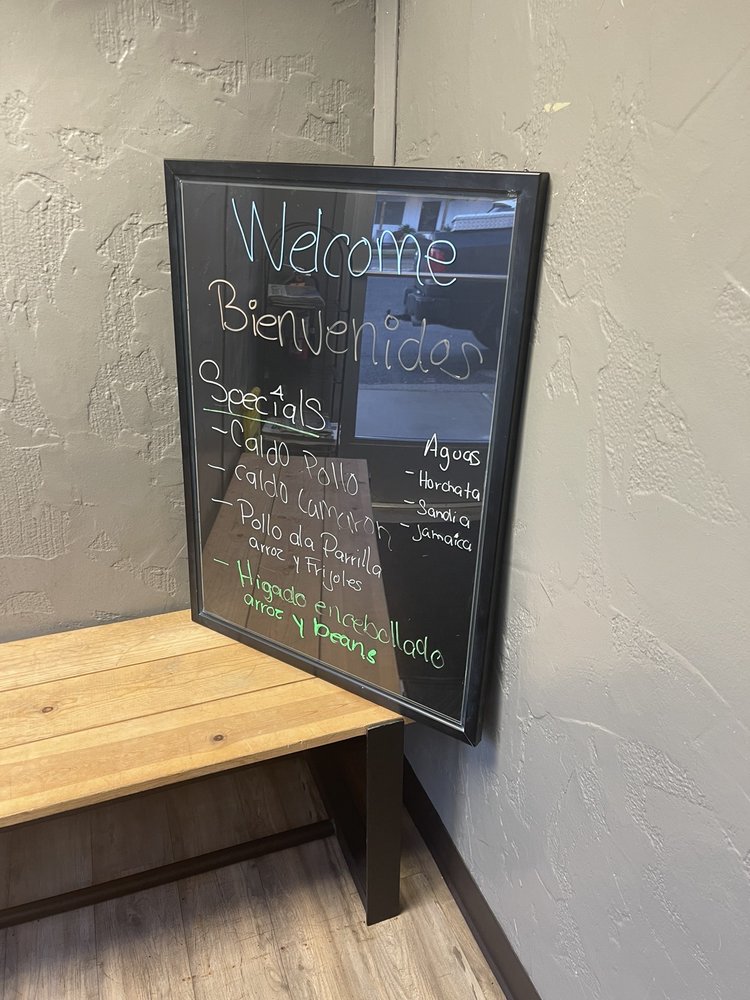 Welcome
Bienvenidos
Specials
- Caldo Pollo
- Caldo Camaron
- Pollo ala Parrilla
arroz y Frijoles
- Higado encebollado
arroz y beans
Aguas
- Horchata
- Sandia
- Jamaica